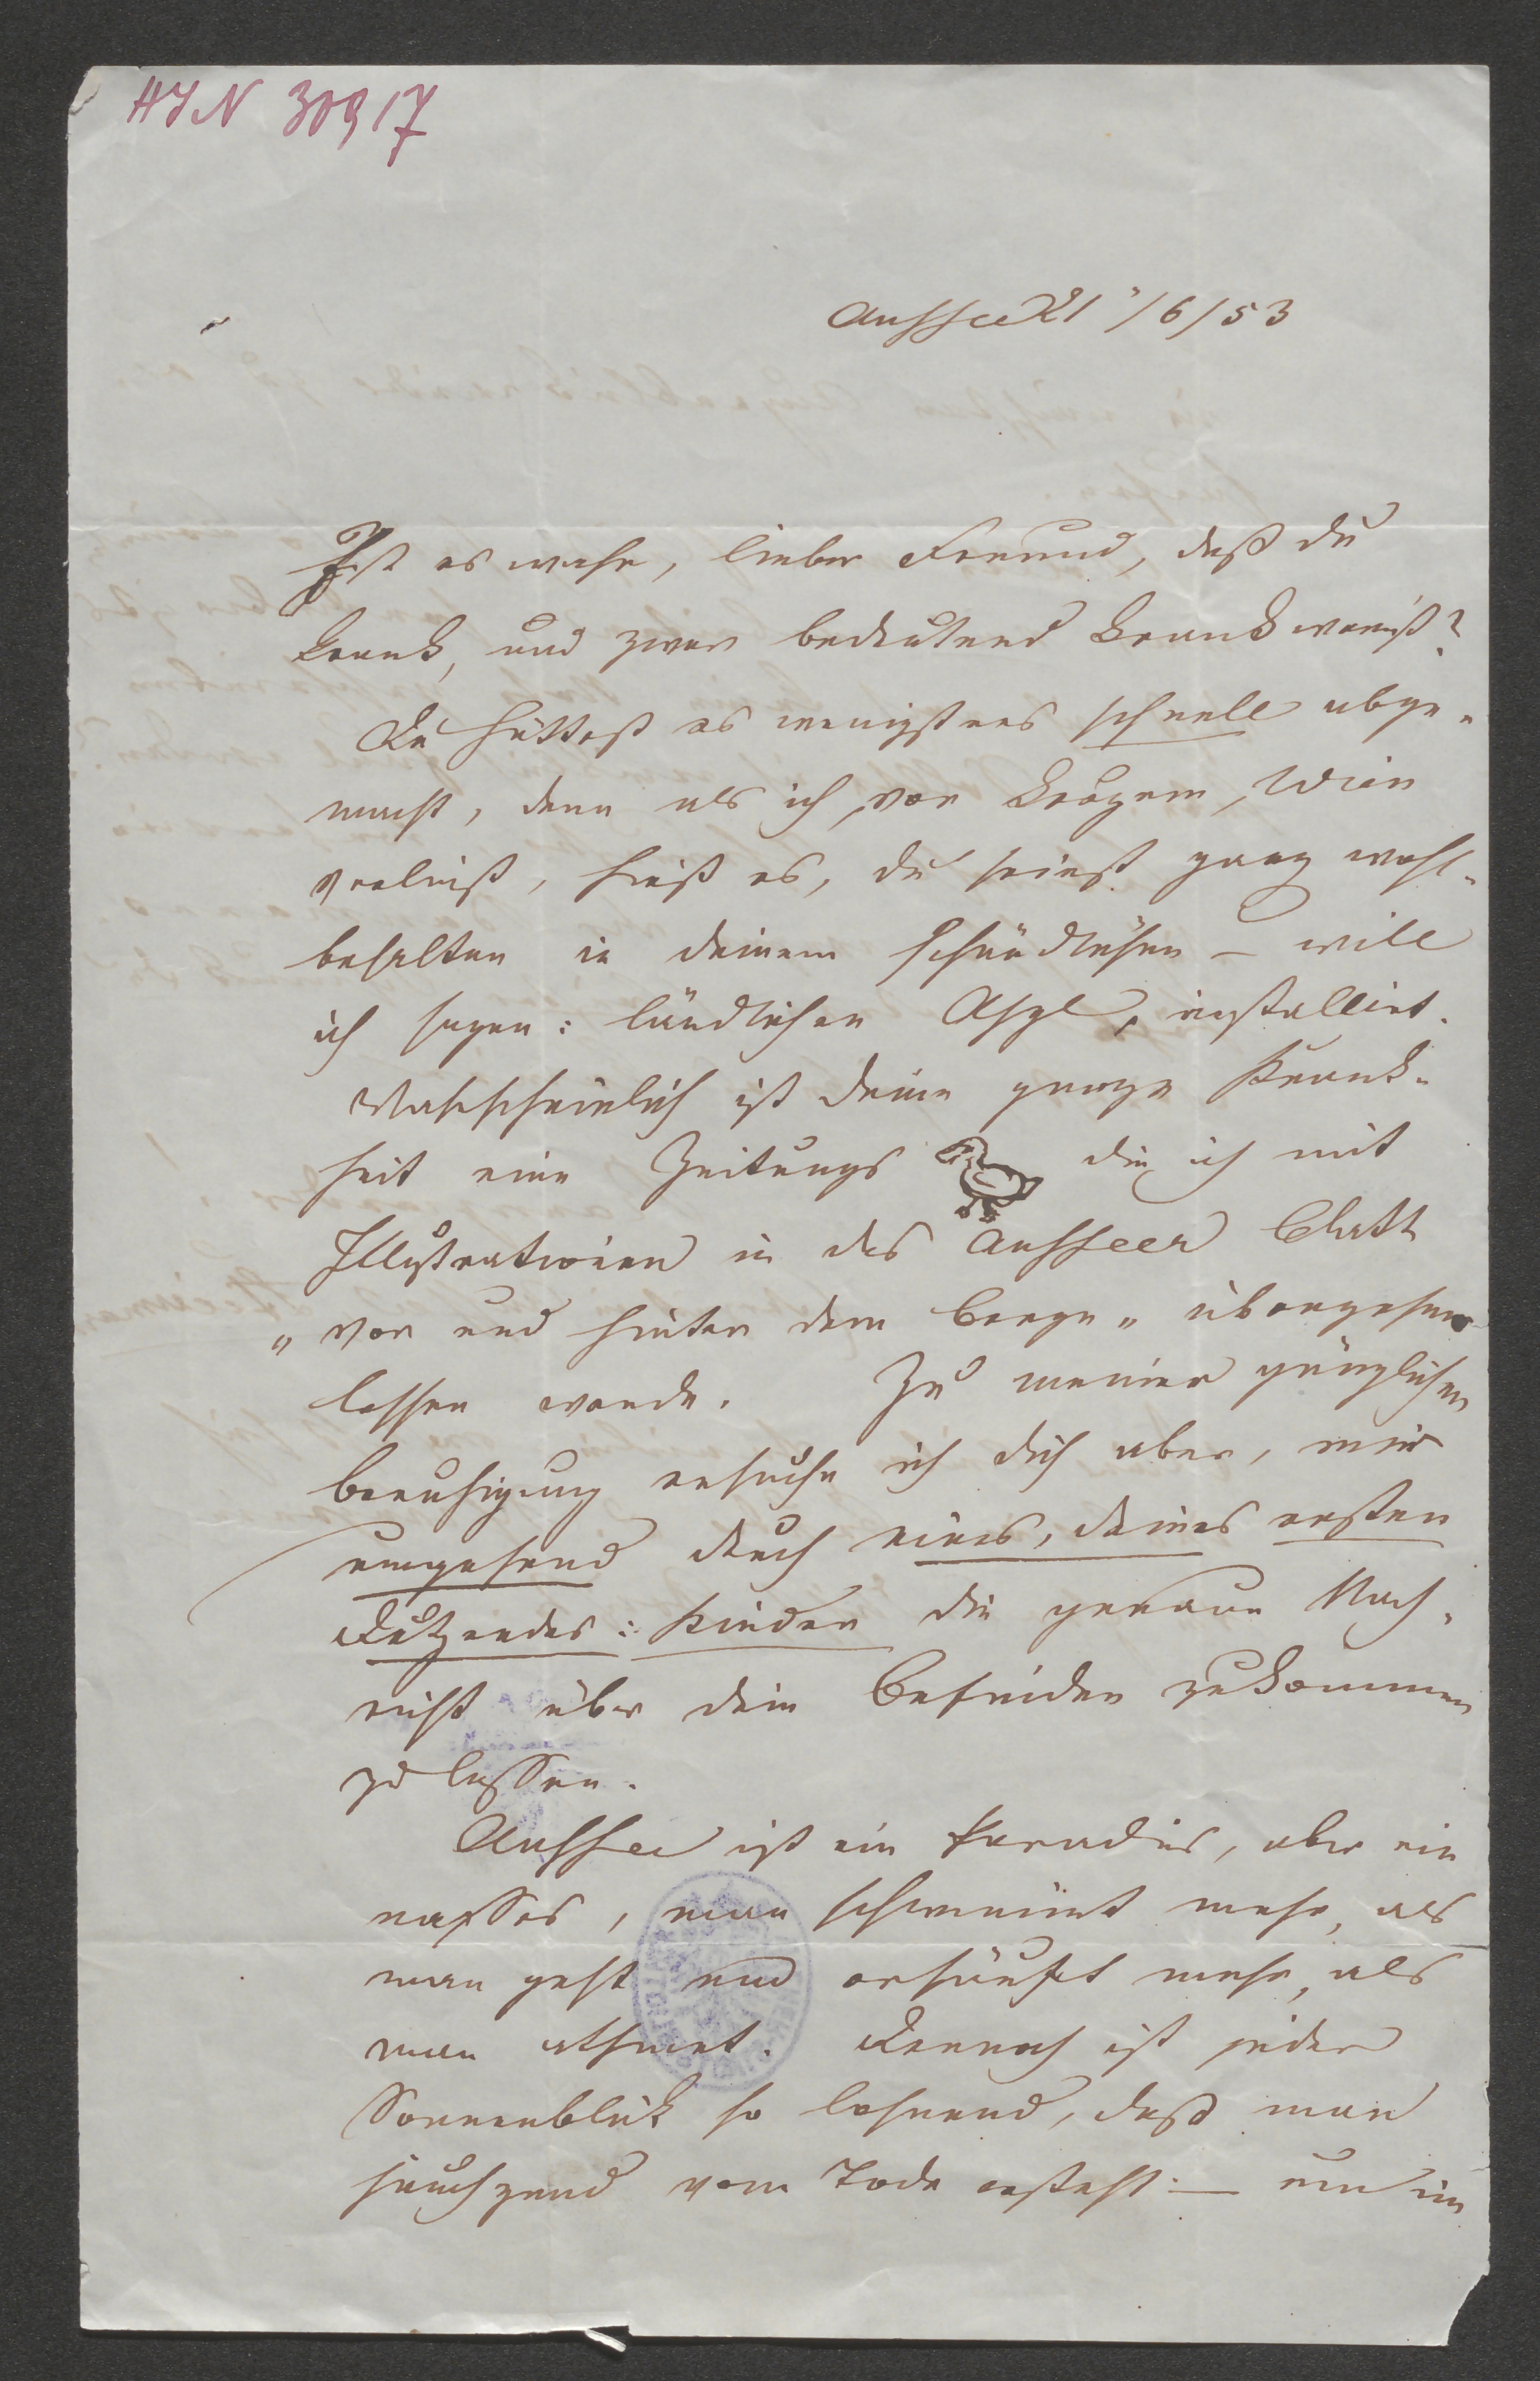 HIN 30917
Aussee 21/6/53
Ist es wahr, lieber Freund, daß du
krank, und zwar bedeutend krank warst?
Du hättest es wenigstens schnell abge-
macht, denn als ich, vor Kurzem, Wien
verließ, hieß es, du seiest ganz wohl-
behalten in deinem schändlichen – will
ich sagen: ländlichen Asyl, installirt.
Wahrscheinlich ist deine ganze Krank-
heit eine Zeitungs die ich mit
Illustrationen in das Ausseer Blatt
„Vor und hinter dem Berge" übergehen
lassen werde. Zu meiner gänzlichen
Beruhigung ersuche ich dich aber, mir
umgehend durch eines, deines ersten
Dutzendes: Kinder die genaue Nach-
richt über dein Befinden zukommen
zu lassen.
Aussee ist ein Paradies, aber ein
nasses, man schwimmt mehr, als
man geht und ersäuft mehr, als
man athmet. Dennoch ist jeder
Sonnenblick so lohnend, daß man
jauchzend vom Tode ersteht – um im